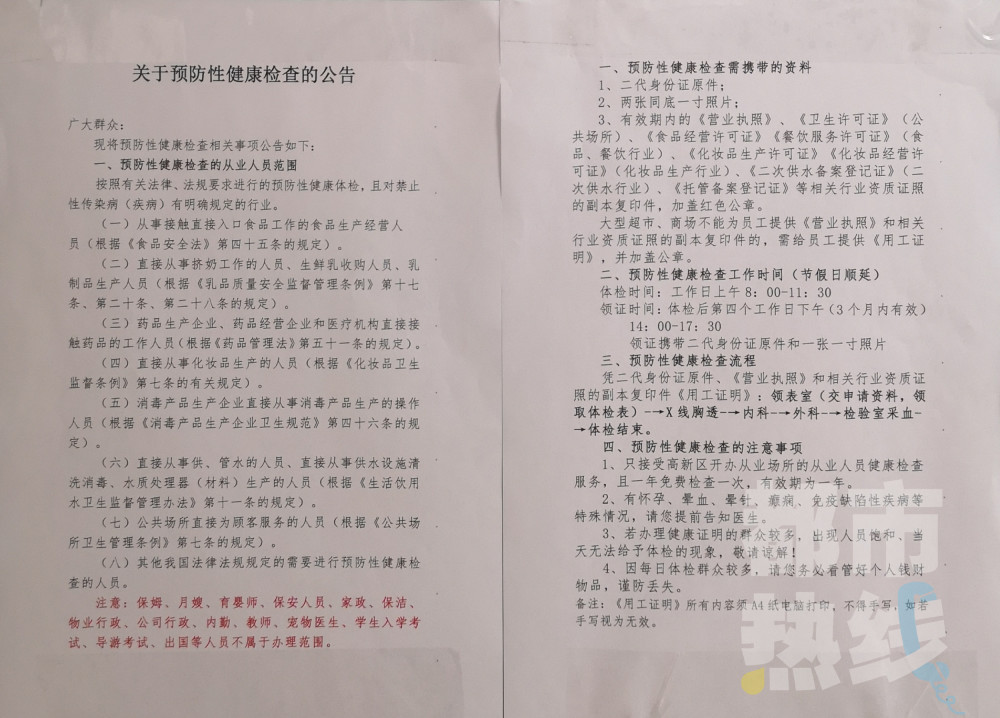 关于预防性健康检查的公告
广大群众：
现将预防性健康检查相关事项公告如下：
一、预防性健康检查的从业人员范围
按照有关法律、法规要求进行的预防性健康体检，且对禁止
性传染病（疾病）有明确规定的行业。
（一）从事接触直接入口食品工作的食品生产经营人
员（根据《食品安全法》第四十五条的规定）。
（二）直接从事挤奶工作的人员、生鲜乳收购人员、乳
制品生产人员（根据《乳品质量安全监督管理条例》第十七
条、第二十条、第二十八条的规定）。
（三）药品生产企业、药品经营企业和医疗机构直接接
触药品的工作人员（根据《药品管理法》第五十一条的规定）。
（四）直接从事化妆品生产的人员（根据《化妆品卫生
监督条例》第七条的有关规定）。
（五）消毒产品生产企业直接从事消毒产品生产的操作
人员（根据《消毒产品生产企业卫生规范》第四十六条的规
定）。
（六）直接从事供、管水的人员、直接从事供水设施清
洗消毒、水质处理器（材料）生产的人员（根据《生活饮用
水卫生监督管理办法》第十一条的规定）。
（七）公共场所直接为顾客服务的人员（根据《公共场
所卫生管理条例》第七条的规定）。
（八）其他我国法律法规规定的需要进行预防性健康检
查的人员。
注意：保姆、月嫂、育婴师、保安人员、家政、保洁、
物业行政、公司行政、内勤、教师、宠物医生、学生入学考
试、导游考试、出国等人员不属于办理范围。
一、预防性健康检查需携带的资料
1、二代身份证原件；
2、两张同底一寸照片；
3、有效期内的《营业执照》、《卫生许可证》（公
共场所）、《食品经营许可证》《餐饮服务许可证》（食
品、餐饮行业）、《化妆品生产许可证》《化妆品经营许
可证》（化妆品生产行业）、《二次供水备案登记证》（二
次供水行业）、《托管备案登记证》等相关行业资质证照
的副本复印件，加盖红色公章。
大型超市、商场不能为员工提供《营业执照》和相关
行业资质证照的副本复印件的，需给员工提供《用工证
明》，并加盖公章。
二、预防性健康检查工作时间（节假日顺延）
体检时间：工作日上午8：00-11：30
领证时间：体检后第四个工作日下午（3个月内有效）
14：00-17：30
领证携带二代身份证原件和一张一寸照片
三、预防性健康检查流程
凭二代身份证原件、《营业执照》和相关行业资质证
照的副本复印件《用工证明》：领表室（交申请资料，领
取体检表）-→X线胸透-→内科-→外科-→检验室采血-
→体检结束。
四、预防性健康检查的注意事项
1、只接受高新区开办从业场所的从业人员健康检查
服务，且一年免费检查一次，有效期为一年。
2、有怀孕、晕血、晕针、癫痫、免疫缺陷性疾病等
特殊情况，请您提前告知医生。
3、若办理健康证明的群众较多，出现人员饱和、当
天无法给予体检的现象，敬请谅解！
4、因每日体检群众较多，请您务必看管好个人钱财
物品，谨防丢失。
备注：《用工证明》所有内容须A4纸电脑打印，不得手写，如若
手写视为无效。
都市
热线